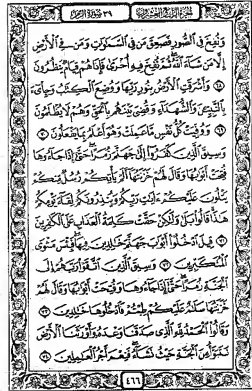 الجزء الرابع والعشرون ٣٩ سورة الزمر
ونفخ في الصور فصعق من في السموات ومن في الأرض
إلا من شاء الله ثم نفخ فيه أخرى فإذا هم قيام ينظرون
٦٨ وأشرقت الأرض بنور ربها ووضع الكتب وجاىء
بالنبين والشهداء وقضى بينهم بالحق وهم لا يظلمون
٦٩ ووفيت كل نفس ما عملت وهو أعلم بما يفعلون ٧٠
وسيق الذين كفروا إلى جهنم زمرا حتى إذا جاءوها
فتحت أبوبها وقال لهم خزنتها ألم يأتكم رسل منكم
يتلون عليكم ءايت ربكم وينذرونكم لقاء يومكم
هذا قالوا بلى ولكن حقت كلمة العذاب على الكفرين
٧١ قيل ادخلوا أبوب جهنم خلدين فيها فبئس مثوى
المتكبرين ٧٢ وسيق الذين اتقوا ربهم إلى
الجنة زمرا حتى إذا جاءوها وفتحت أبوبها وقال لهم
خزنتها سلم عليكم طبتم فادخلوها خلدين ٧٣
وقالوا الحمد لله الذي صدقنا وعده وأورثنا الأرض
نتبوأ من الجنة حيث نشاء فنعم أجر العملين ٧٤
٤٦٦